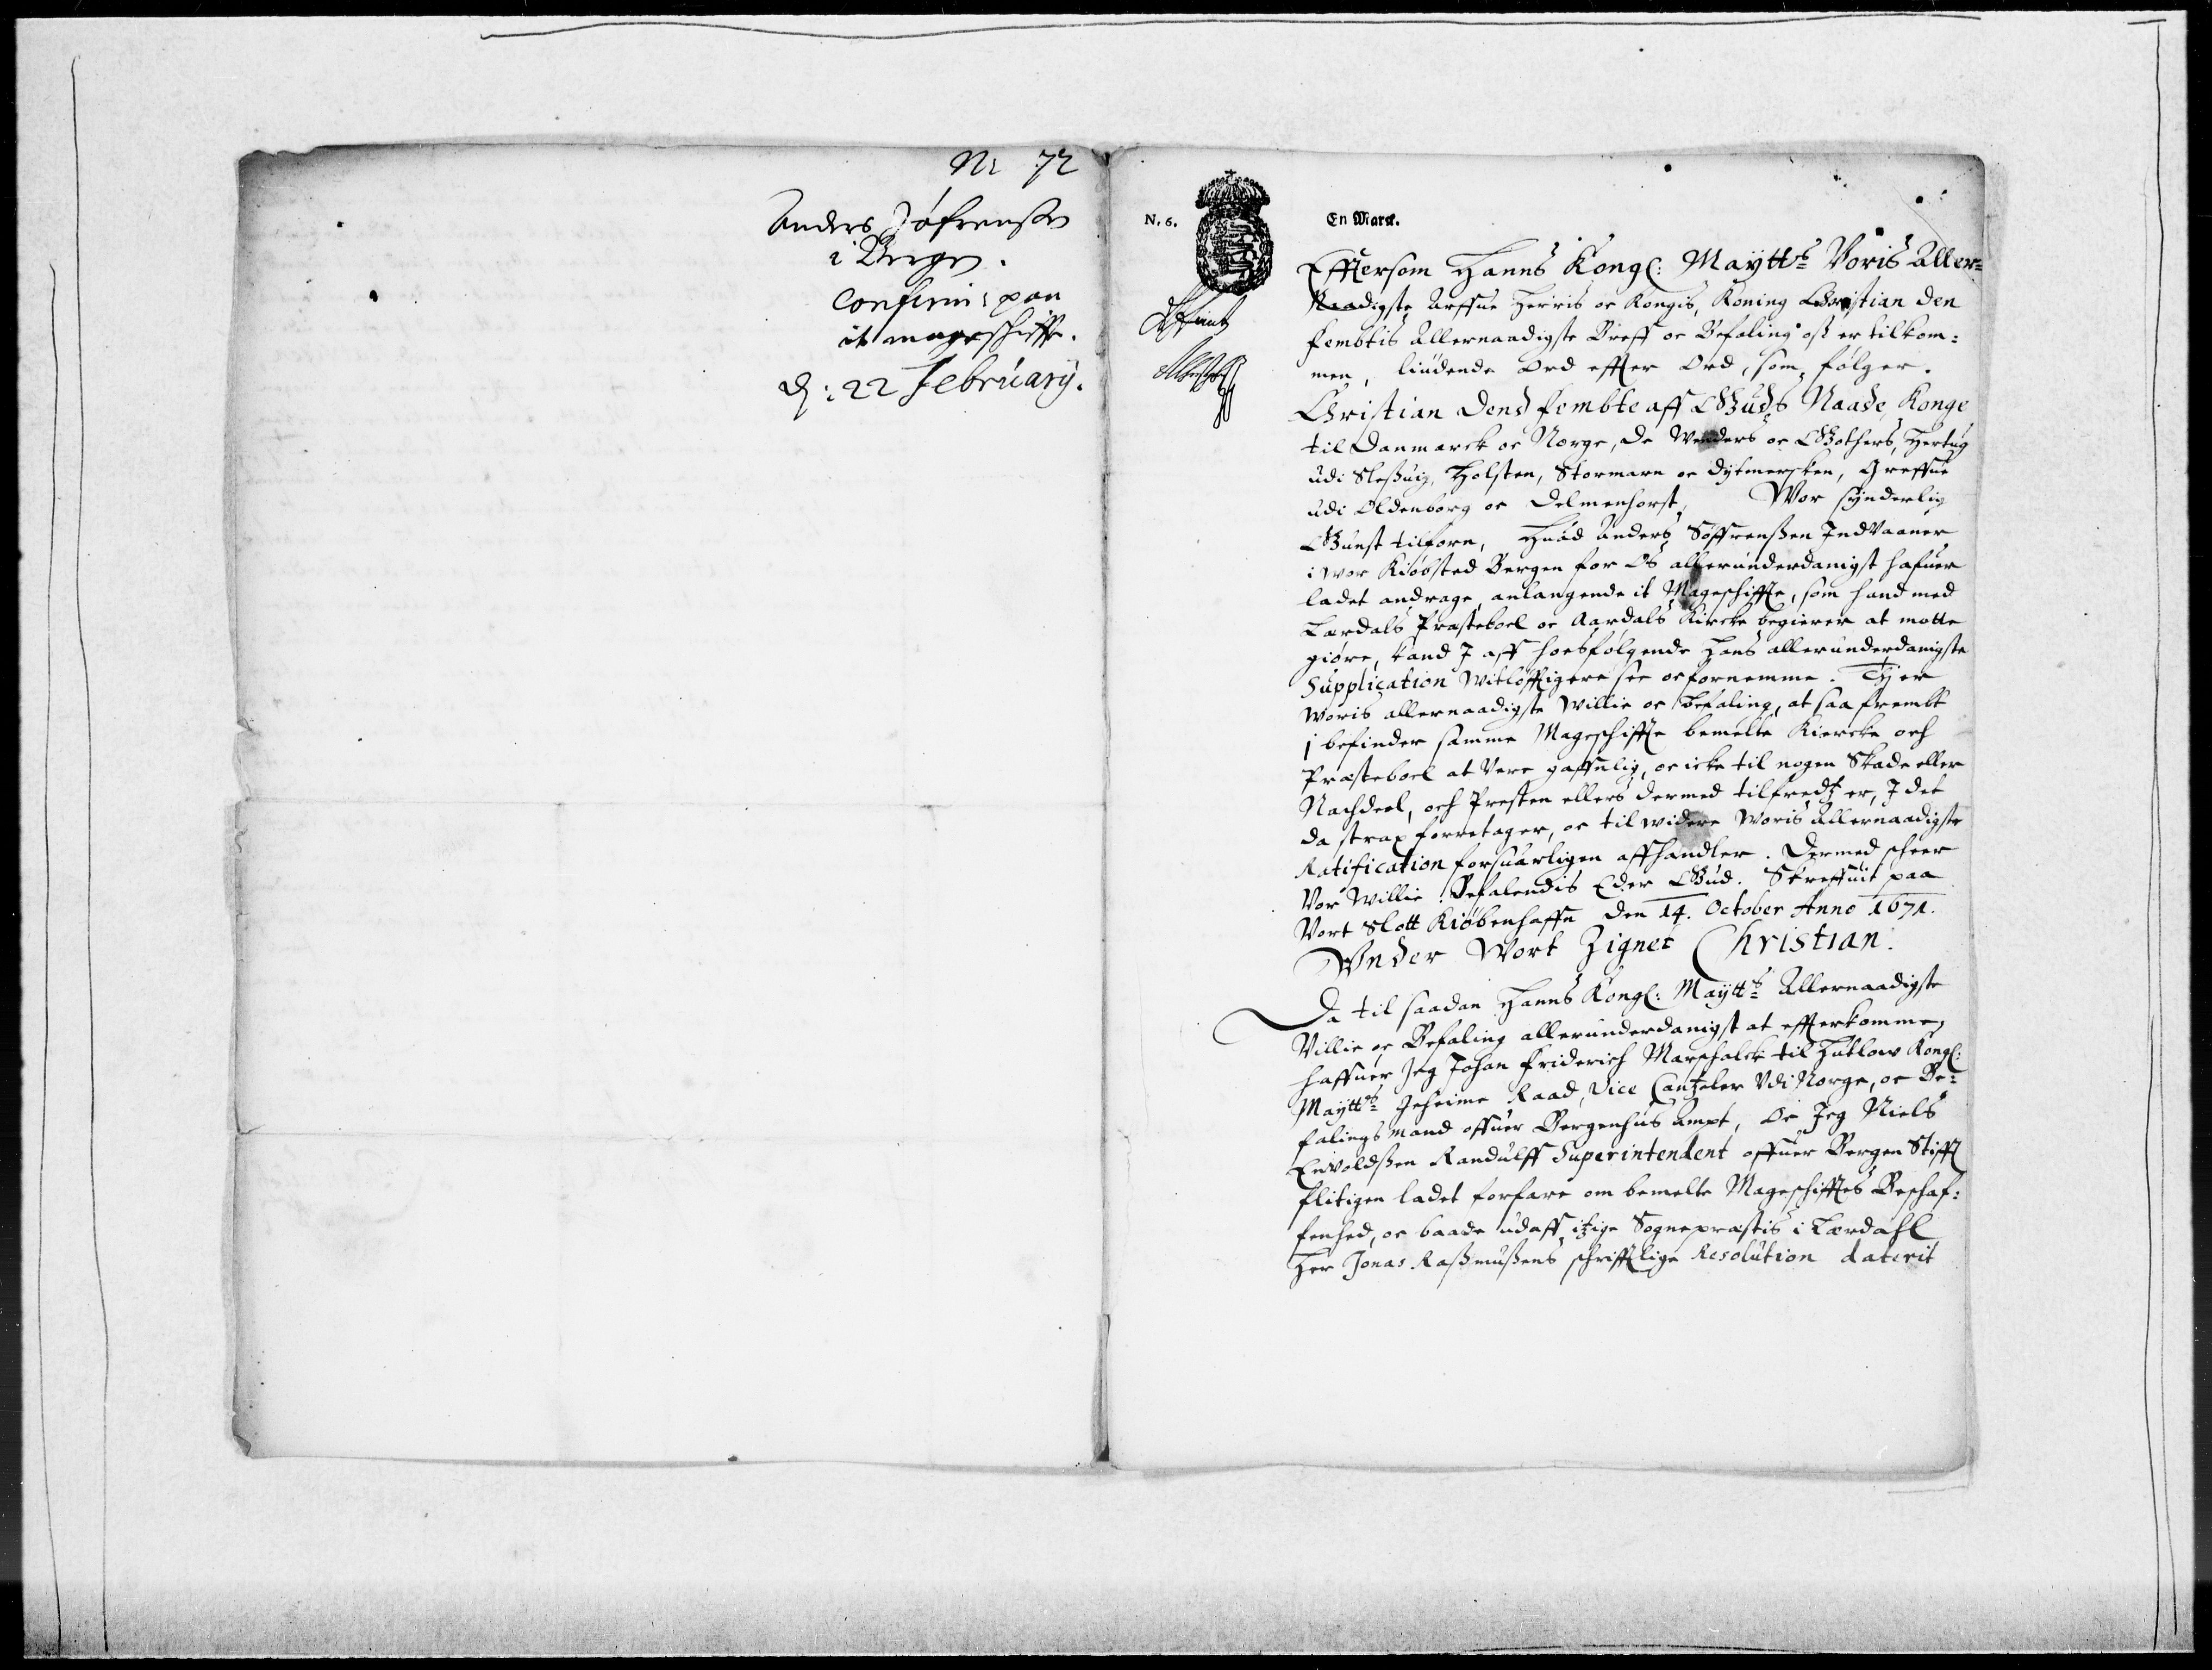 Nr 72
Anders Søfrensen
i Bergen.
Confirm: paa
it mageschiffte.
d: 22 February.
N. 6.
En Marck.
Efftersom Hanns Kongl: Maytts Voris Aller=
Naadigste Arffue Herris oc Kongis, Koning Christian den
fembtis Allernaadigste Breff oc Befaling oss er tilkom=
men, liudende Ord effter Ord, som følger.
Christian dend fembte aff Guds Naade, Konge
til Danmarck oc Norge, de Wenders oc Gothers, Hertug
udi Slessuig, Holsten, Stormarn oc Dytmersken, Greffue
udi Oldenborg oc Delmenhorst, Wor synderlig
Gunst tilforn, Huad Anders Søffrenssen Indvaaner
i wor Kiøbsted Bergen for Os allerunderdanigst hafuer
ladet andrage, anlangende it Mageschiffte, som hand med
Lærdals Præsteboel oc Aardals Kircke begierer at motte
giøre, kand I aff hoesfølgende Hans allerunderdanigste
Supplication Witløfftigere see oc fornemme. Ty er
Woris allernaadigste Willie oc Befaling, at saafrembt
i befinder samme Mageschiffte bemelte Kiercke och
Præsteboel at Vere gaffnlig, oc icke til nogen Skade eller
Nachdeel, och Presten ellers dermed tilfredtz er, I det
da strax forretager, oc til widere Woris Allernaadigste
Ratification forsuarligen affhandler. Dermed scheer
Vor Willie. Befalendis Eder Gud. Skreffuit paa
Vort Slott Kiøbenhaffn den 14. October Anno 1671.
Wnder Wort Zignet Christian.
Da til saadan Hanns Kongl: Maytts Allernaadigste
Villie oc Befaling allerunderdanigst at effterkomme,
haffuer Jeg Johan Friderich Marschalck til Hutlow Kongl:
Maytts Geheime Raad, Vice Cantzeler Udi Norge, oc Be=
falings mand offuer Bergenhus Ampt, Oc Jeg Niels
Envoldssen Randulff Superintendent offuer Bergen Stifft
flitigen ladet forfare om bemelte Mageschifftes Beschaf=
fenhed, oc baade udaff itzige Sognepræstis i Lærdahl
Her Jonas Rassmussens schrifftlige Resolution daterit